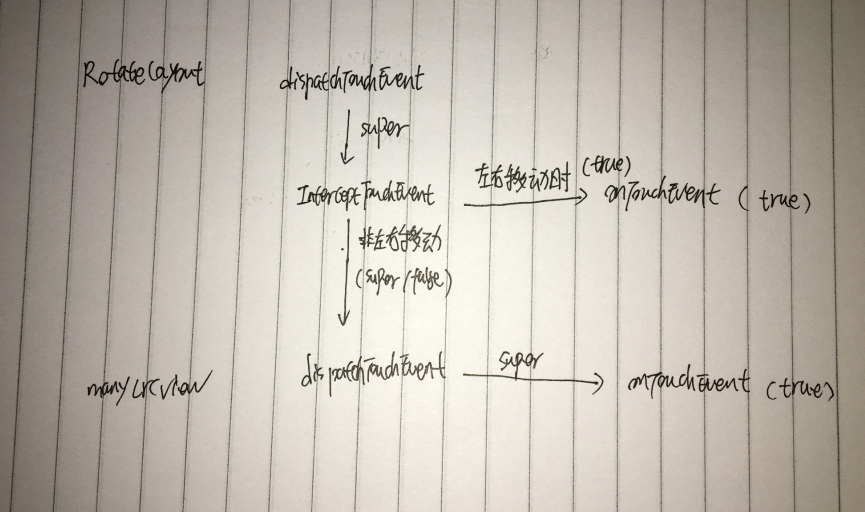 RotateLayout
dispatchTouchEvent
super
InterceptTouchEvent
左右移动时 (true)
onTouchEvent (true)
非左右移动
(super/false)
manyLrcView
dispatchTouchEvent
super
onTouchEvent (true)